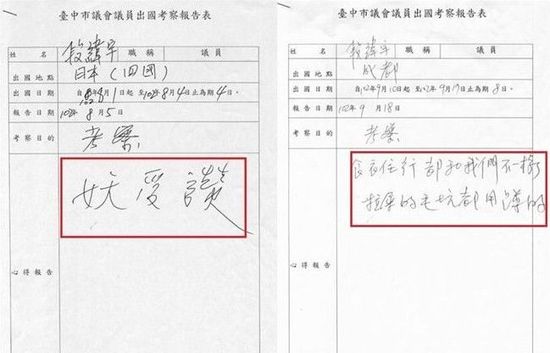 臺中市議會議員出國考察報告表
姓名 段緯宇 職稱 議員
出國地點 日本（四國）
出國日期 自102年8月1日起至102年8月4日止為期4日。
報告日期 102年8月5日
考察目的 考察
妖受讚
心得報告
臺中市議會議員出國考察報告表
姓名 段緯宇 職稱 議員
出國地點 成都
出國日期 自102年9月10日起至102年9月17日止為期8日。
報告日期 102年9月18日
考察目的 考察
食衣住行都和我們不一樣
拉屎的毛坑都用蹲的
心得報告